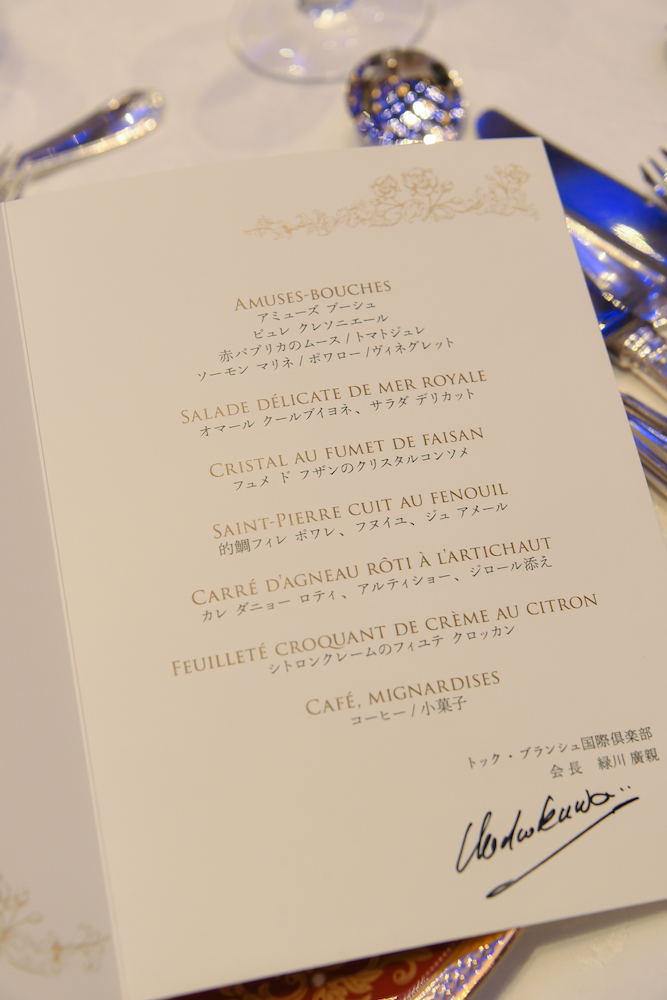 AMUSES-BOUCHES
アミューズ ブーシュ
ピュレ クレソニエール
赤パプリカのムース / トマトジュレ
ソーモン マリネ / ポワロー /ヴィネグレット
SALADE DÉLICATE DE MER ROYALE
オマール クールブイヨネ、サラダ デリカット
CRISTAL AU FUMET DE FAISAN
フュメ ド フザンのクリスタルコンソメ
SAINT-PIERRE CUIT AU FENOUIL
的鯛フィレ ポワレ、フヌイユ、ジュ アメール
CARRÉ D'AGNEAU RÔTI À L'ARTICHAUT
カレ ダニョー ロティ、アルティショー、ジロール添え
FEUILLETÉ CROQUANT DE CRÈME AU CITRON
シトロンクレームのフィユテ クロッカン
CAFÉ, MIGNARDISES
コーヒー / 小菓子
トック・ブランシュ国際倶楽部
会長 緑川 廣親